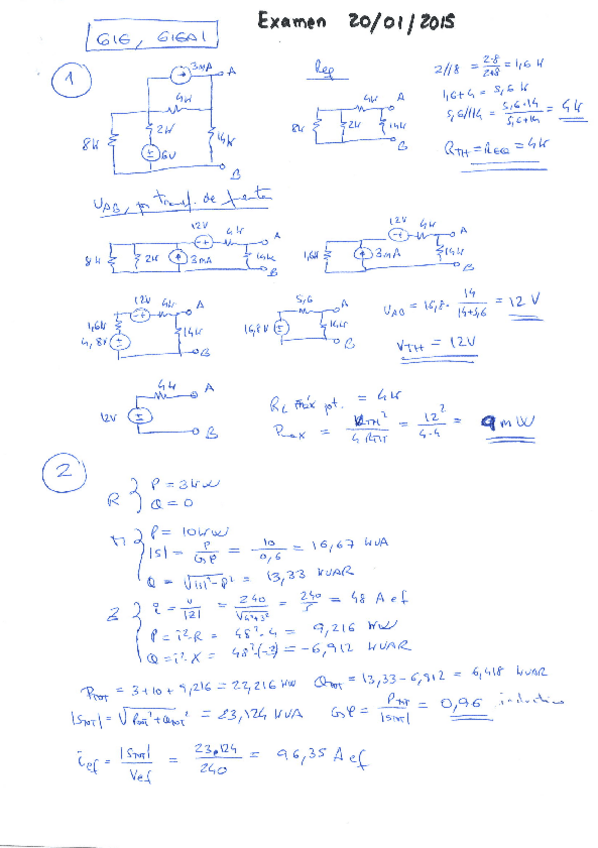 Examen 20/01/2015
GIE, GIEAI
1
3mA
A
4k
8k
2k
6V
14k
B
Req
4k
A
8k
2k
14k
B
2//8 = 2·8/2+8 = 1,6 k
1,6+4 = 5,6 k
5,6//14 = 5,6·14/5,6+14 = 4k
RTH = REQ = 4k
UAB, por transf. de fuentes
12V
4k
A
8k
2k
3mA
14k
B
12V
4k
A
1,6k
3mA
14k
B
12V
4k
A
1,6k
4,8V
14k
B
5,6
A
16,8V
14k
B
UAB = 16,8 · 14/14+5,6 = 12 V
VTH = 12V
4k
A
12V
B
RL máx pot. = 4k
Pmax = VTH²/4 RTH = 12²/4·4 = 9 mW
2
R } P = 3kW
Q = 0
P = 10kW
|S| = P/cosφ = 10/0,6 = 16,67 kVA
Q = √|S|²-P² = 13,33 kVAR
Z } i = V/|Z| = 240/√4²+3² = 240/5 = 48 A ef
P = i²·R = 48²·4 = 9,216 kW
Q = i²·X = 48²·(-3) = -6,912 kVAR
PTOT = 3+10+9,216 = 22,216 kW QTOT = 13,33-6,912 = 6,418 kVAR
|STOT| = √PTOT²+QTOT² = 23,124 kVA cosφ = PTOT/|STOT| = 0,96 inductivo
ief = |STOT|/Vef = 23.124/240 = 96,35 A ef